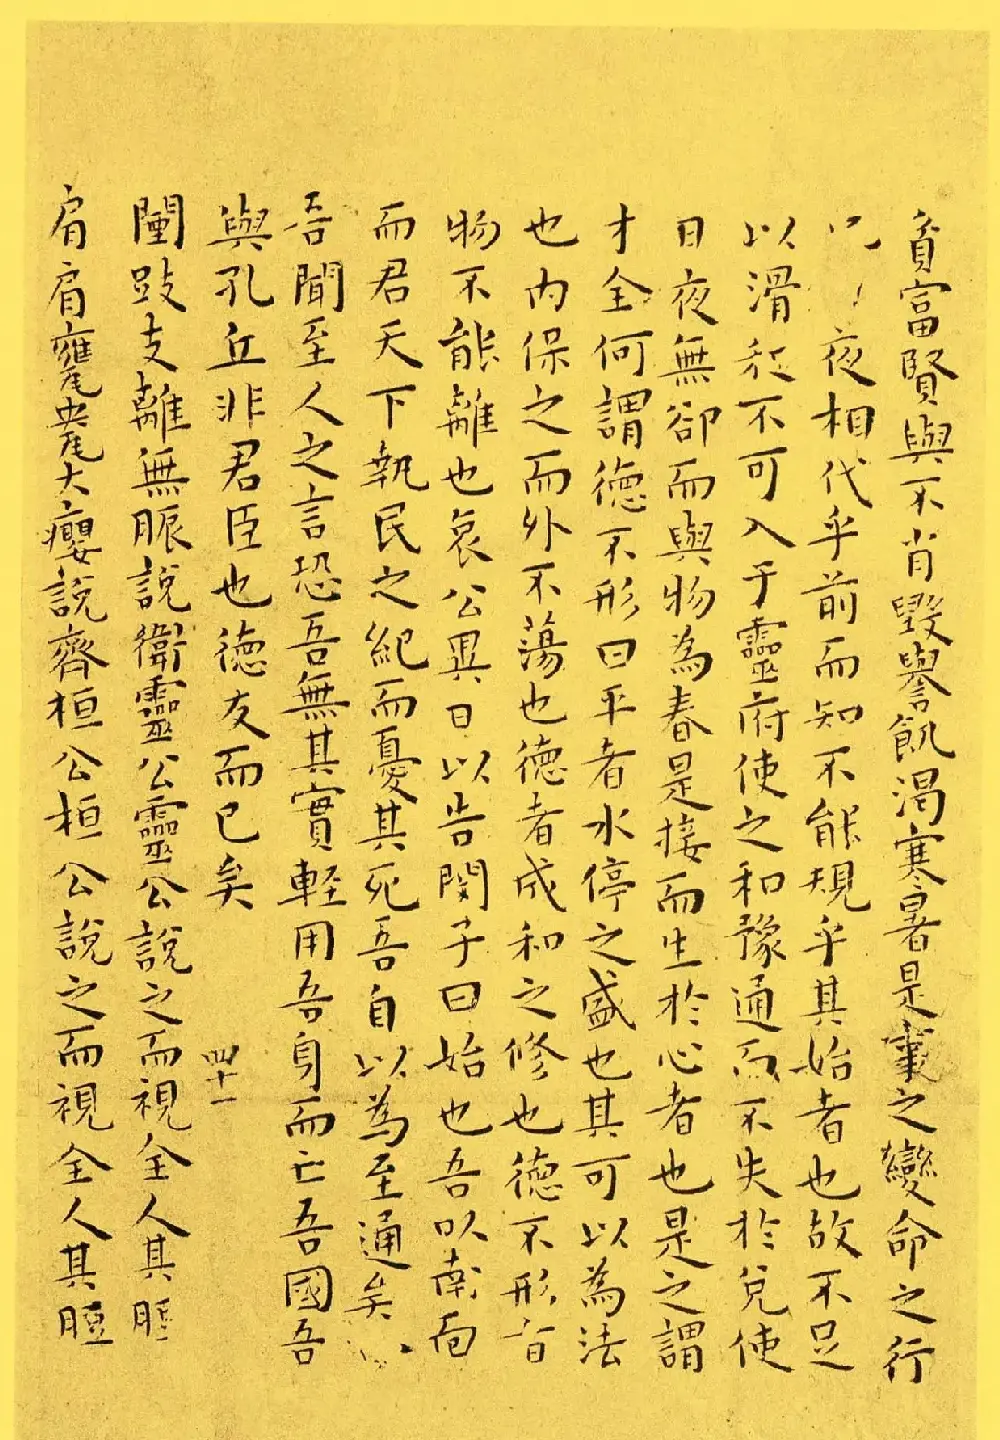 貧富賢與不肖毀譽飢渴寒暑是事之變命之行
夜相代乎前而知不能規乎其始者也故不足
以滑和不可入于靈府使之和豫通而不失於兌使
日夜無卻而與物為春是接而生於心者也是之謂
才全何謂德不形曰平者水停之盛也其可以為法
也內保之而外不蕩也德者成和之修也德不形者
物不能離也哀公異日以告閔子曰始也吾以南面
而君天下執民之紀而憂其死吾自以為至通矣
吾聞至人之言恐吾無其實軽用吾身而亡吾國吾
與孔丘非君臣也德友而已矣
四十一
闉跂支離無脤說衛靈公靈公說之而視全人其脰
肩肩甕㼜大癭說齊桓公桓公說之而視全人其脰